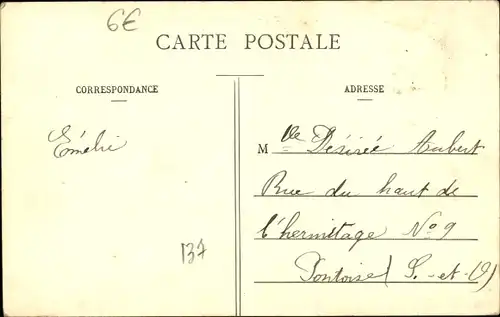 6€
CARTE POSTALE
CORRESPONDANCE
ADRESSE
Emélie
Mlle Désirée Aubert
Rue du haut de
l'hermitage No 9
Pontoise (S.-et-O)
137